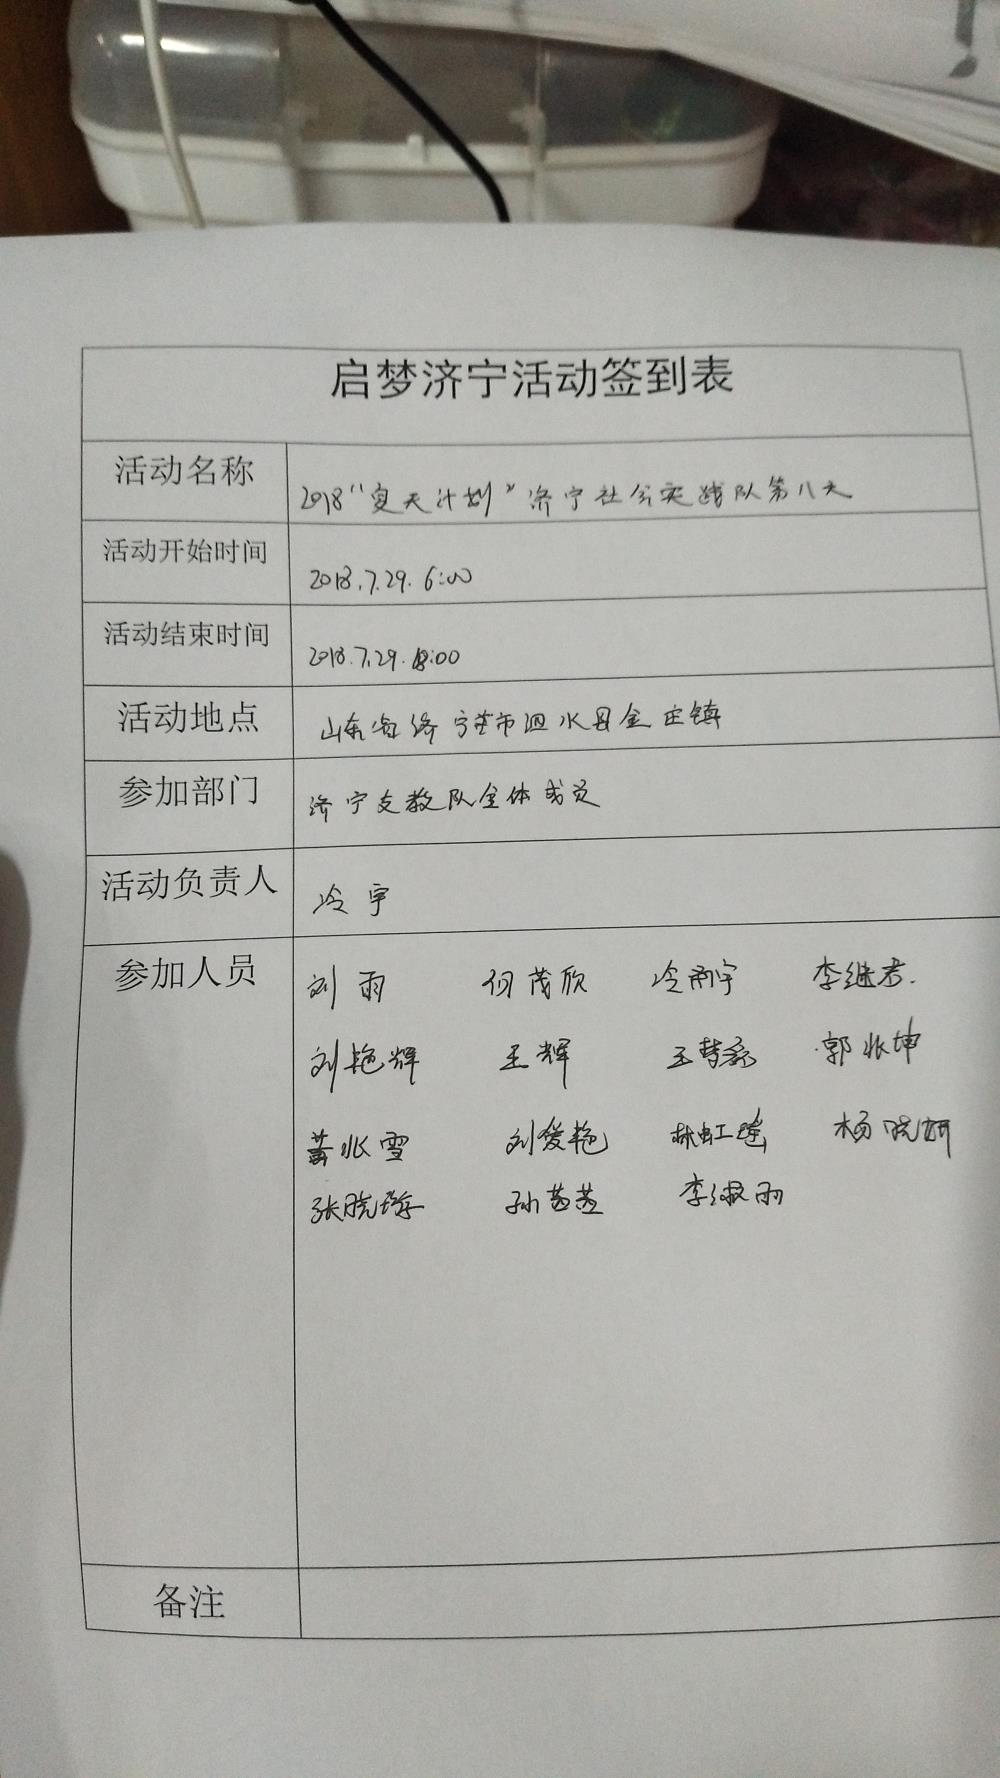 启梦济宁活动签到表
活动名称 2018“夏天计划”济宁社会实践队第八天
活动开始时间 2018.7.29. 6:00
活动结束时间 2018.7.29. 18:00
活动地点 山东省济宁市泗水县金庄镇
参加部门 济宁支教队全体成员
活动负责人 冷宇
参加人员 刘雨 何茂欣 冷雨宇 李继君.
刘艳辉 王辉 王梦磊 郭兆坤
黄兆雪 刘爱艳 林虹瑶 杨晓妍
张晓璇 孙茜茜 李淑雨
备注